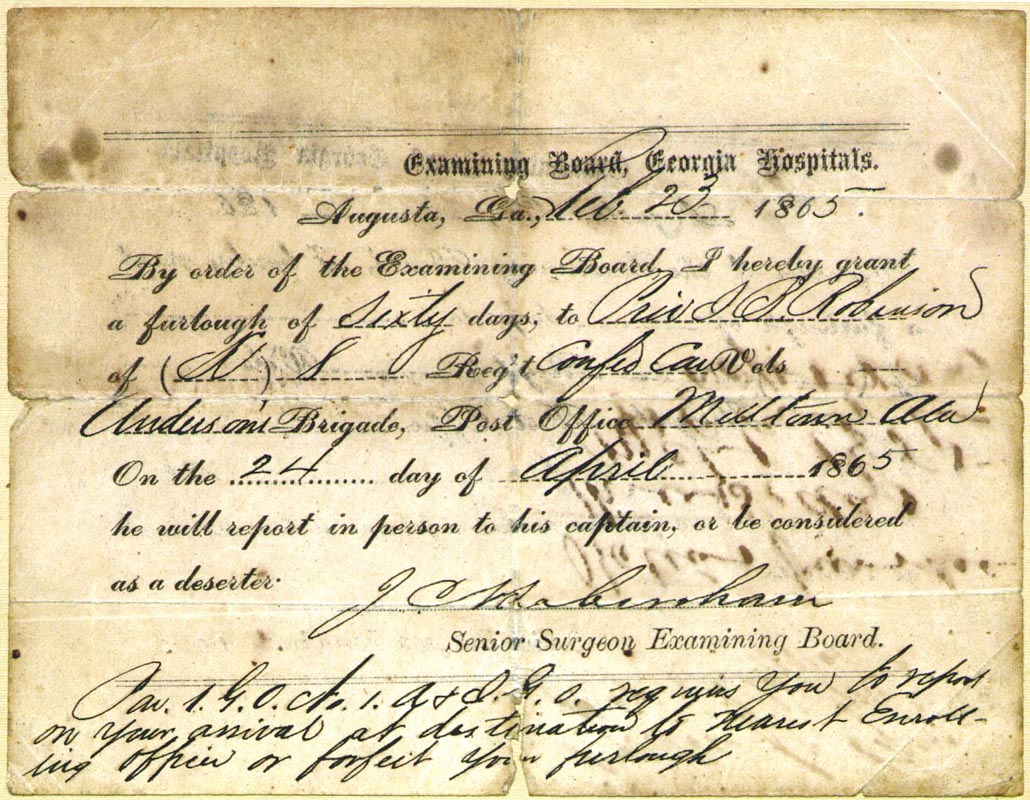 Examining Board, Georgia Hospitals.
Augusta, Ga., Feb. 23 1865.
By order of the Examining Board, I hereby grant
a furlough of Sixty days, to Priv. Robinson
of ( ) 8 Reg't Confed Cav Vols
Anderson's Brigade, Post Office Milltown Ala
On the 24 day of April 1865
he will report in person to his captain, or be considered
as a deserter.
J C Habersham
Senior Surgeon Examining Board.
Par. 1. G. O. No. 1. A & I. G. O. requires you to report
on your arrival at destination to nearest Enroll-
ing officer or forfeit your furlough